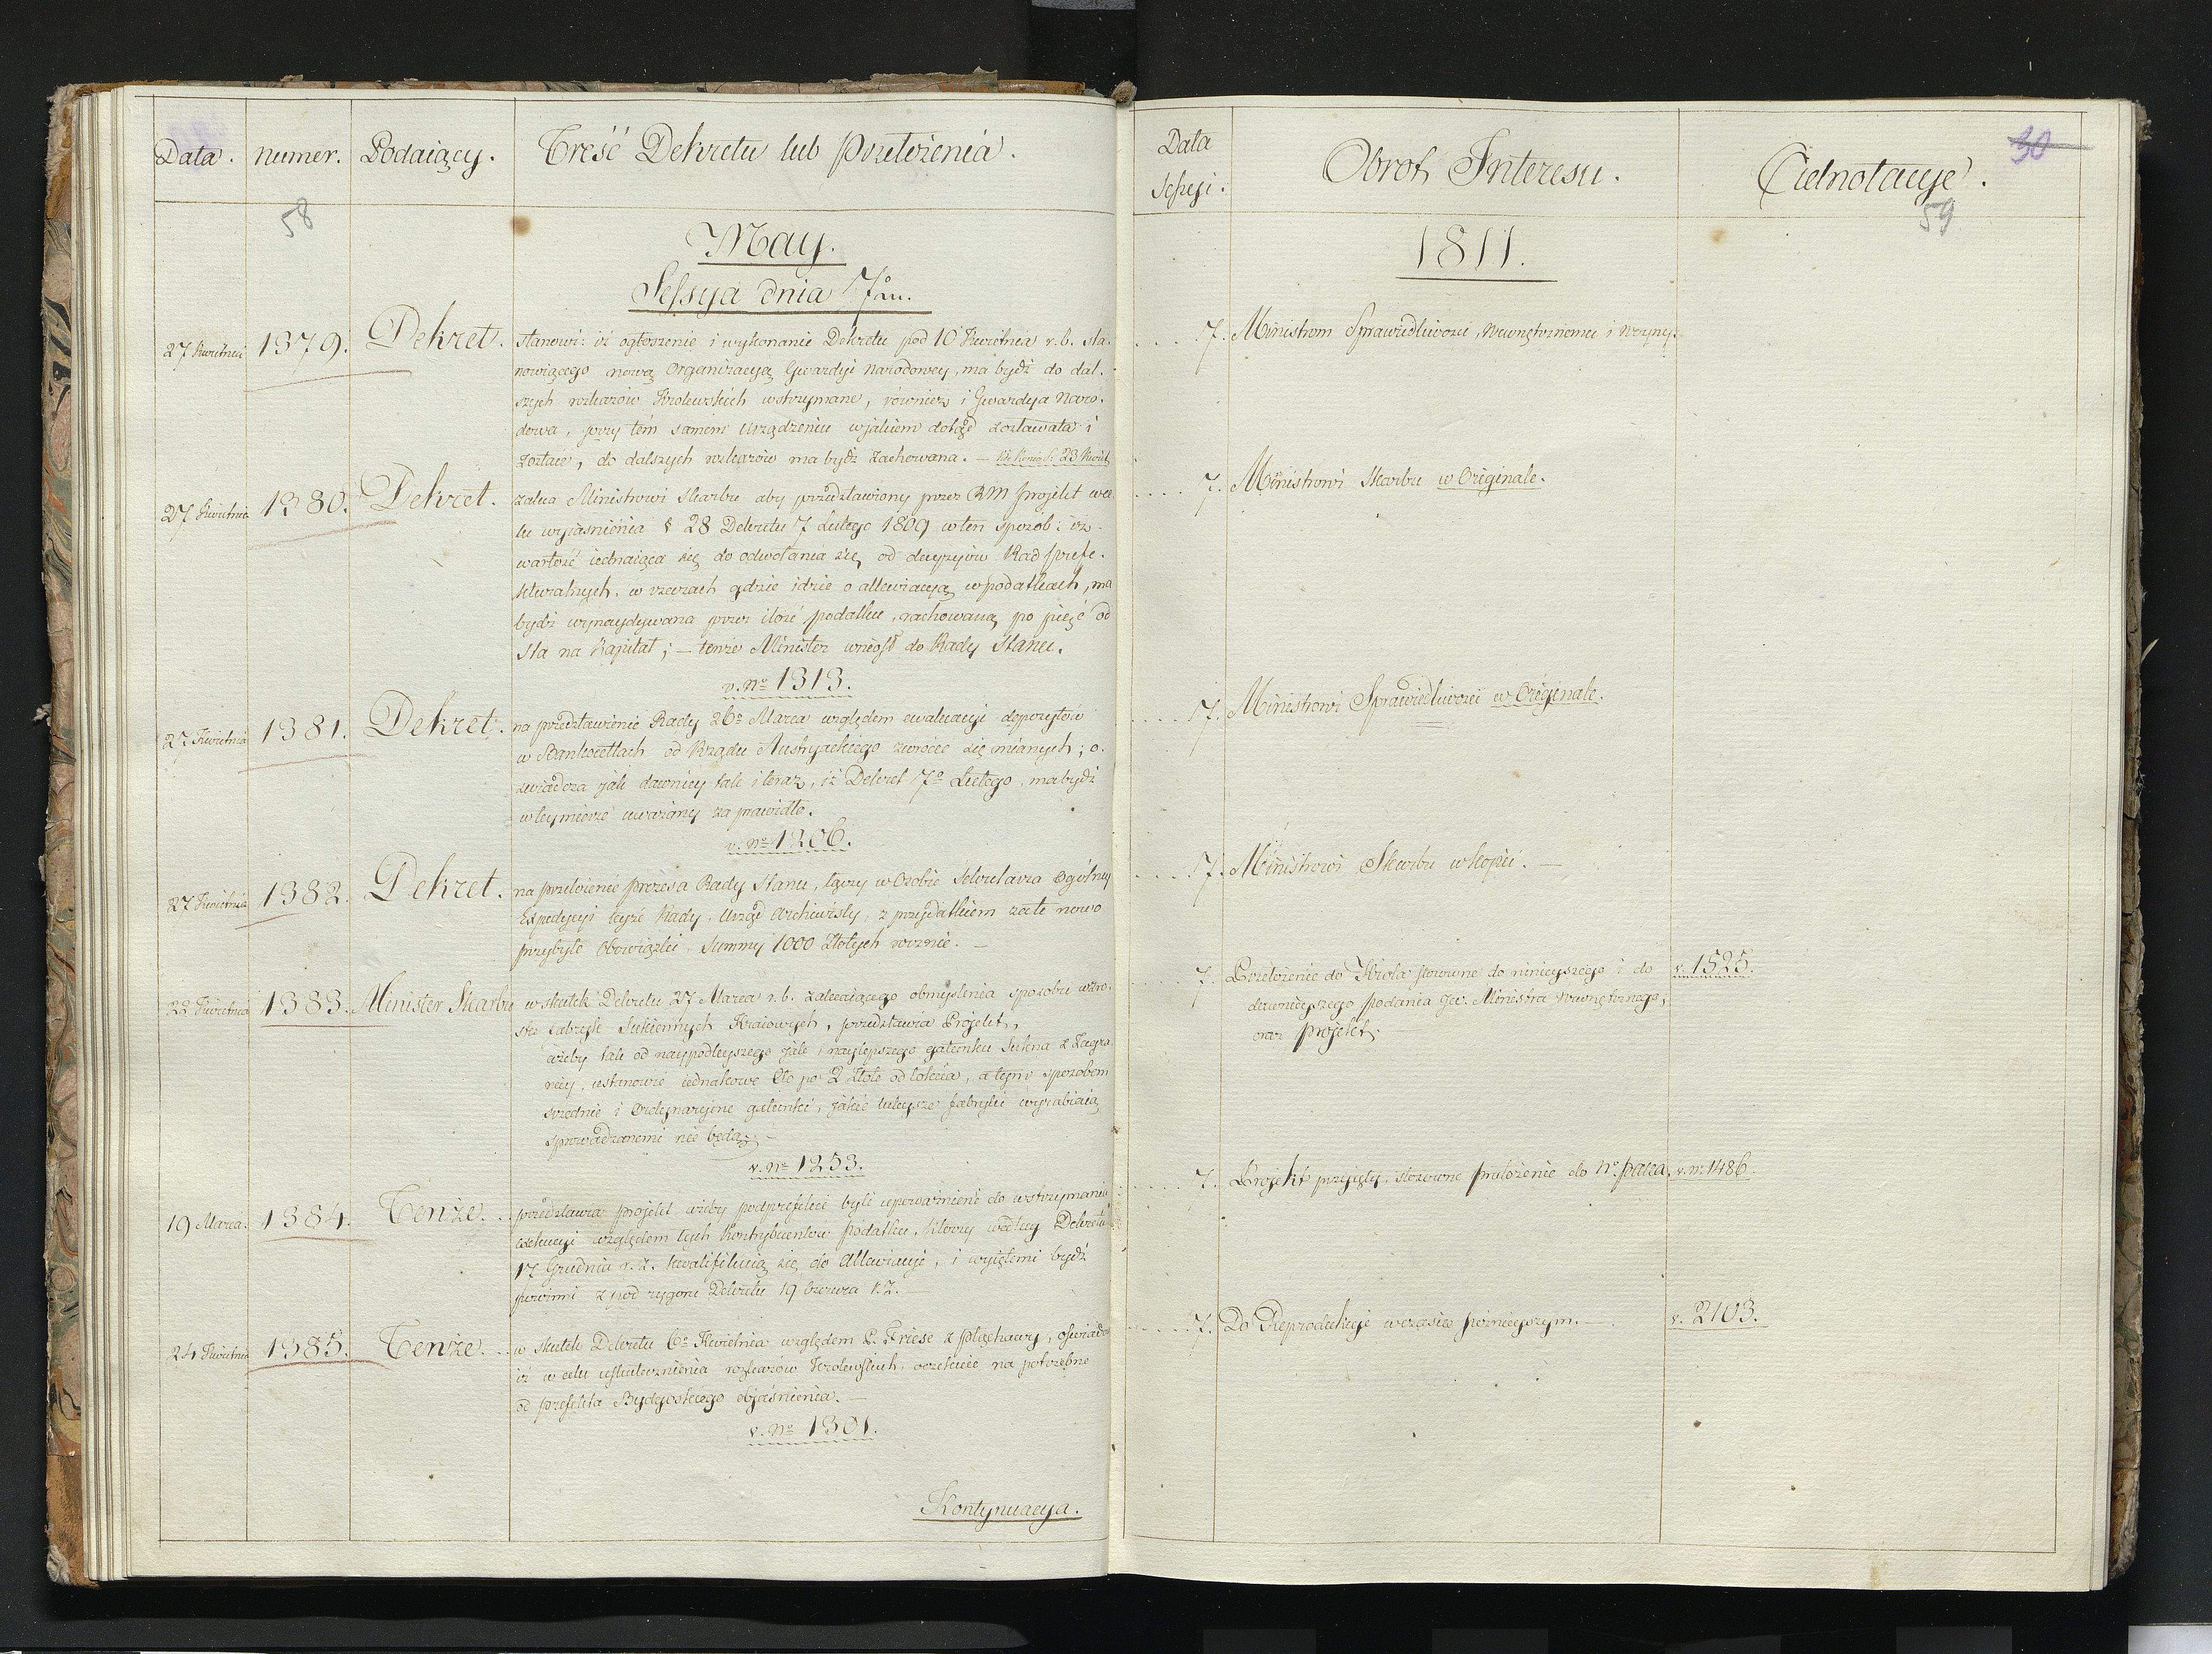 Data. numer. Podaiący. Treść Dekretu lub Przełożenia.
58
May.
Sessya dnia 7o m.
27 Kwietnia 1379. Dekret. stanowi: iż ogłoszenie i wykonanie Dekretu pod 10 Kwietnia r.b. sta-
nowiącego nową Organizacyą Gwardyi Narodowey, ma bydź do dal-
szych rozkazów Królewskich wstrzymane, również i Gwardya Naro-
dowa, przy tém samem Urządzeniu w jakiem dotąd zostawała i
zostaie, do dalszych rozkazów ma bydź zachowana. — 23 Kwiet.
27 Kwietnia 1380. Dekret. zaleca Ministrowi Skarbu aby przedstawiony przez RM projekt wce-
lu wyiaśnienia § 28 Dekretu 7 Lutego 1809 w ten sposób: iż
wartość iednaiąca się do odwołania się od decyzyiów Rad prefe-
kturalnych, w rzeczach gdzie idzie o allewiacyą w podatkach, ma
bydź wynaydywana przez ilość podatku, rachowaną po pięć od
sta na Kapitał; — tenże Minister wniosł do Rady Stanu.
v. No 1313.
27 Kwietnia 1381. Dekret. na przedstawienie Rady 26o Marca względem ewaluacyi depozytów
w Bankocetlach od Rządu Austryackiego zwrócic się mianych; o-
świadcza jak dawniey tak i teraz, iż Dekret 7o Lutego, ma bydź
w tey mierze uważany za prawidło.
v. No 1206.
27 Kwietnia 1382. Dekret. na przełożenie prezesa Rady Stanu, łączy w Osobie Sekretarza Ogólney
Expedycyi teyże Rady, Urząd Archiwisty, z przydatkiem za te nowo
przybyłe Obowiązki, Summy 1000 Złotych rocznie. —
22 Kwietnia 1383. Minister Skarbu w skutek Dekretu 27 Marca r.b. zalecaiącego obmyślenia sposobu wzro-
stu fabryk Sukiennych Kraiowych, przedstawia Projekt,
ażeby tak od naypodleyszego jak i naylepszego gatunku Sukna z Zagra-
nicy, ustanowić iednakowe Cło po 2 Złote od łokcia, a tym sposobem
srzednie i Ordynaryine gatunki, jakie tuteysze fabryki wyrabiaią
sprowadzanemi nie będą; —
v. No 1253.
19 Marca. 1384. Tenże. przedstawia projekt ażeby podprefekci byli upoważnieni do wstrzymania
exekucyi względem tych Kontrybuentów podatku, którzy według Dekretu
17 Grudnia r.z. kwalifikuią się do Allewiacyi, i wyiętemi bydź
powinni z pod rygoru Dekretu 19 Czerwca r.z. —
24 Kwietnia 1385. Tenże. w skutek Dekretu 6o Kwietnia względem P. Friese z Płachawy, oświadcza
iż w celu uskutecznienia rozkazów Królewskich, oczekuie na potrzebne
od prefekta Bydgoskiego obiaśnienia. —
v. No 1301.
Kontynuacya.
Data
Sessyi. Obrot Interesu. Adnotacye. 30
59
1811.
7. Ministrom Sprawiedliwości, Wewnętrznemu i Woyny.
7. Ministrowi Skarbu w Originale.
7. Ministrowi Sprawiedliwości w Originale.
7. Ministrowi Skarbu w kopii. —
7. Przełożenie do Króla stosowne do ninieyszego i do v. 1525.
dawnieyszego podania Jw. Ministra Wewnętrznego,
oraz projekt.
7. Projekt przyięty, stosowne przełożenie do Nn. Pana. v. No 1486.
7. Do Reprodukcyi w czasie pózniejszym. — v. 2103.